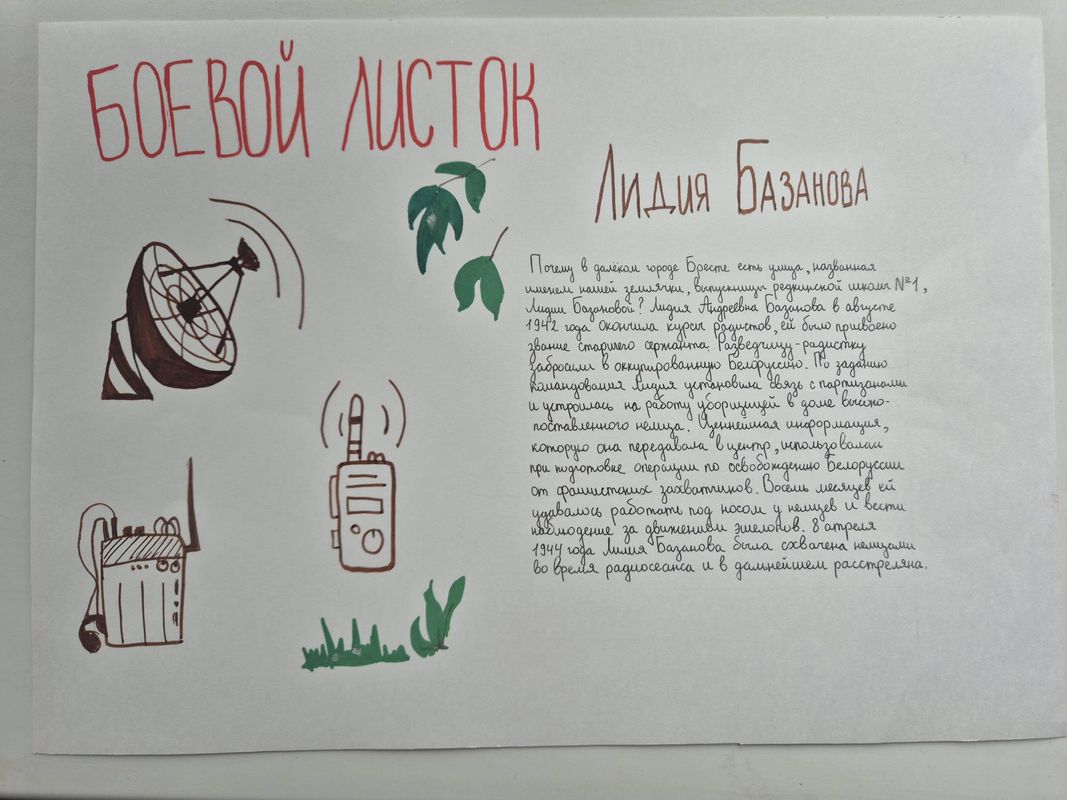 БОЕВОЙ ЛИСТОК
ЛИДИЯ БАЗАНОВА
Почему в далёком городе Бресте есть улица, названная
именем нашей землячки, выпускницы редкинской школы №1,
Лидии Базановой? Лидия Андреевна Базанова в августе
1942 года окончила курсы радистов, ей было присвоено
звание старшего сержанта. Разведчицу-радистку
забросили в оккупированную Белоруссию. По заданию
командования Лидия установила связь с партизанами
и устроилась на работу уборщицей в доме высоко-
поставленного немца. Ценнейшая информация,
которую она передавала в центр, использовали
при подготовке операции по освобождению Белоруссии
от фашистских захватчиков. Восемь месяцев ей
удавалось работать под носом у немцев и вести
наблюдение за движением эшелонов. 8 апреля
1944 года Лидия Базанова была схвачена немцами
во время радиосеанса и в дальнейшем расстреляна.